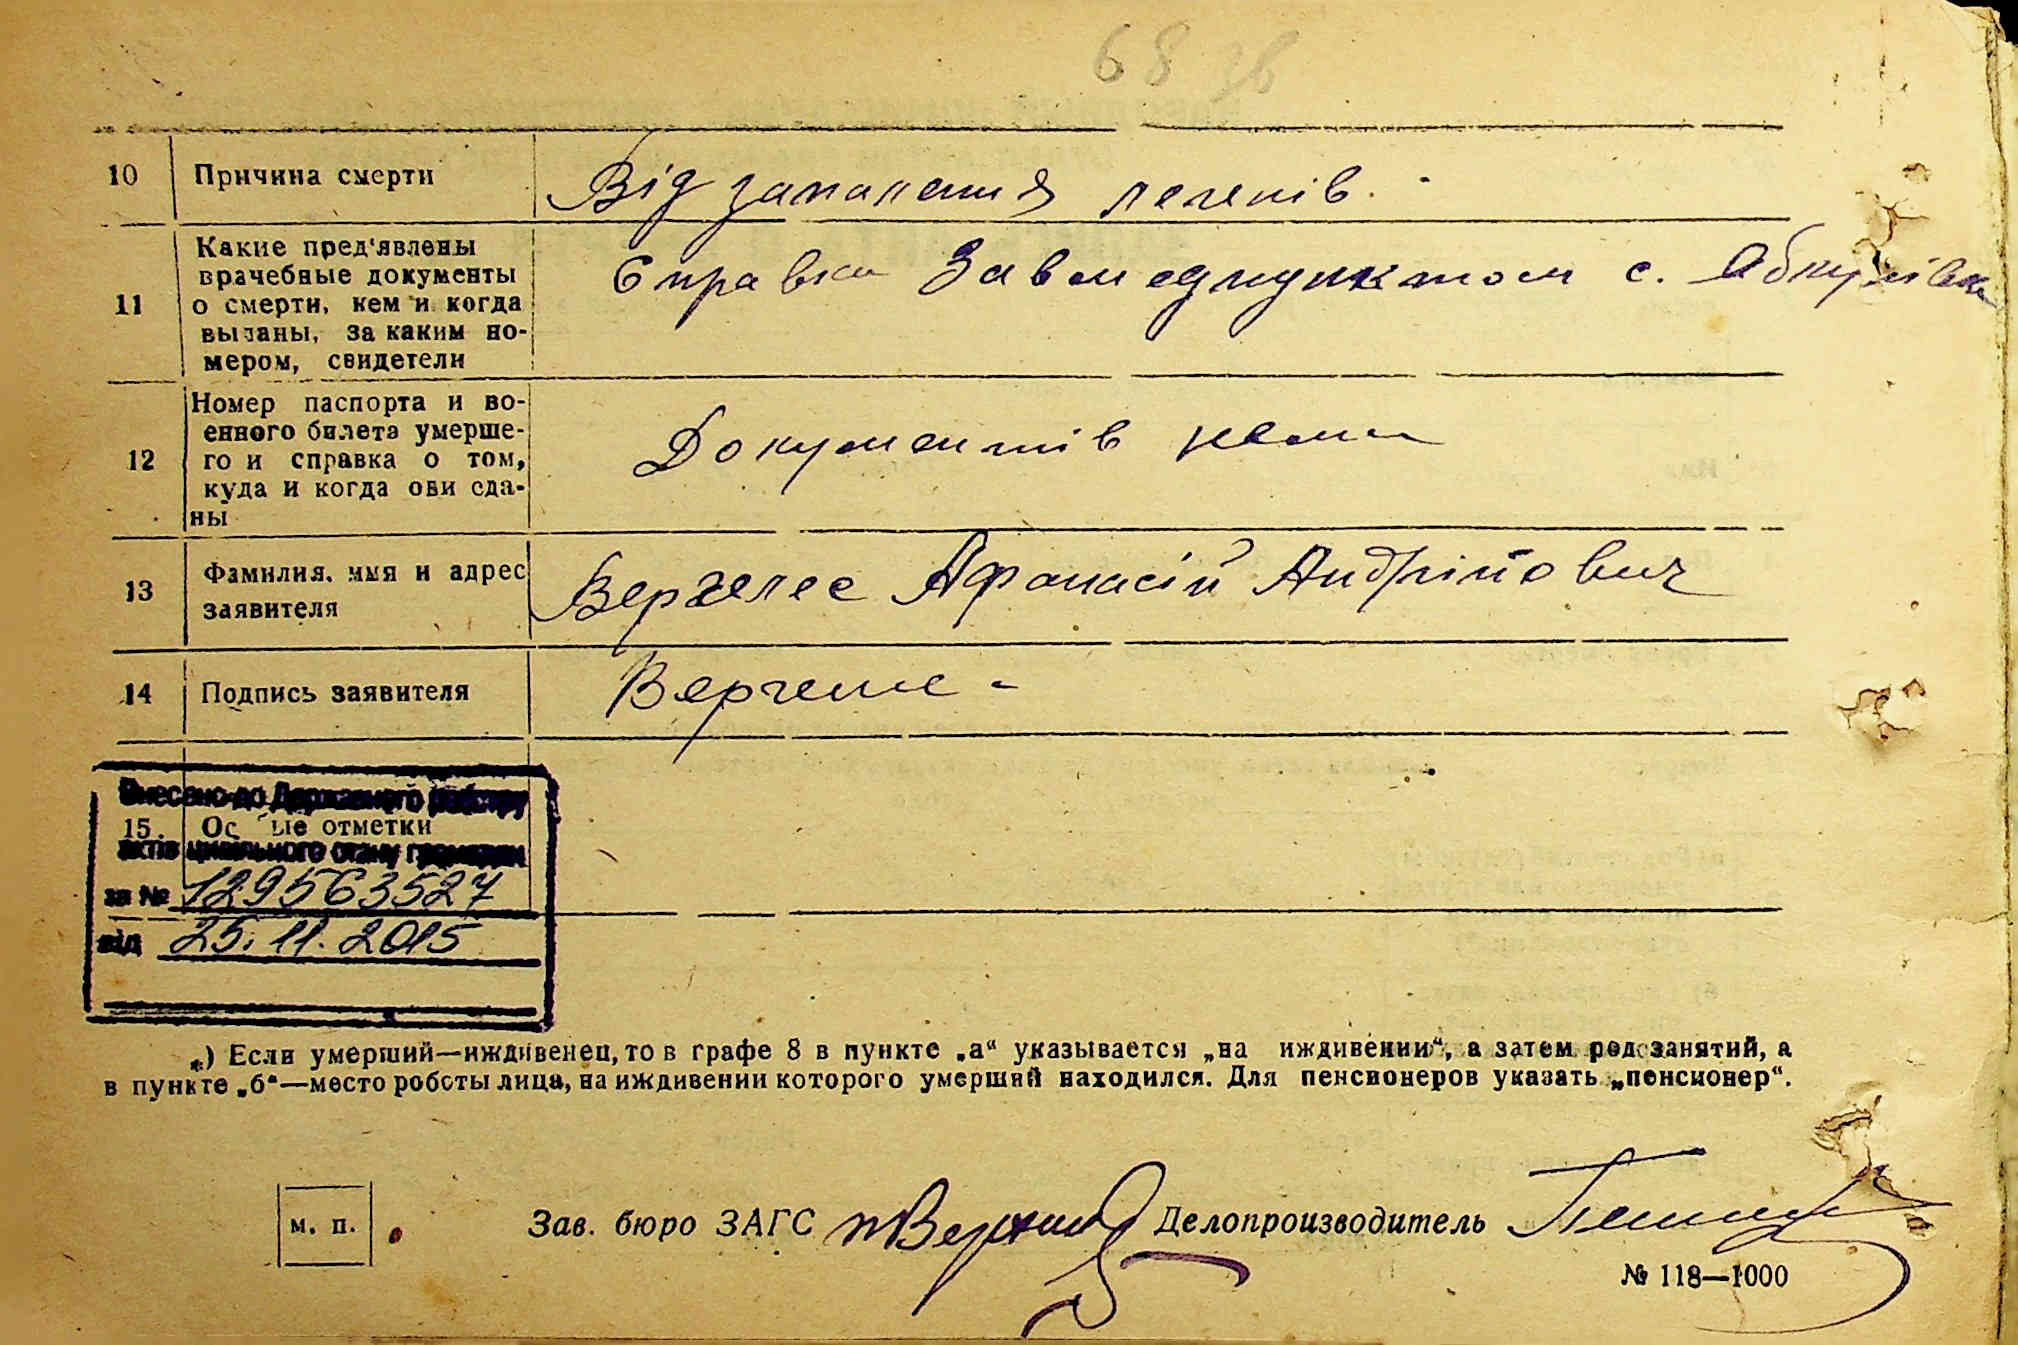 68 зв
10 Причина смерти Від запаления легенів.
11 Какие пред'явлены
врачебные документы
о смерти, кем и когда
выданы, за каким но-
мером, свидетели
Справка Завмедпунктом с.
12 Номер паспорта и во-
енного билета умерше-
го и справка о том,
куда и когда они сда-
ны
Документів нема
13 Фамилия, имя и адрес
заявителя
Вергелес Афанасій Андрійович
14 Подпись заявителя Вергелес -
Внесено до Державного реєстру
15. Особые отметки
актів цивільного стану громадян
за № 129563527
від 25.11.2015
*) Если умерший—иждивенец, то в графе 8 в пункте „а“ указывается „на иждивении“, а затем род занятий, а
в пункте „б“—место роботы лица, на иждивении которого умерший находился. Для пенсионеров указать „пенсионер“.
м. п. Зав. бюро ЗАГС Делопроизводитель
№ 118—1000